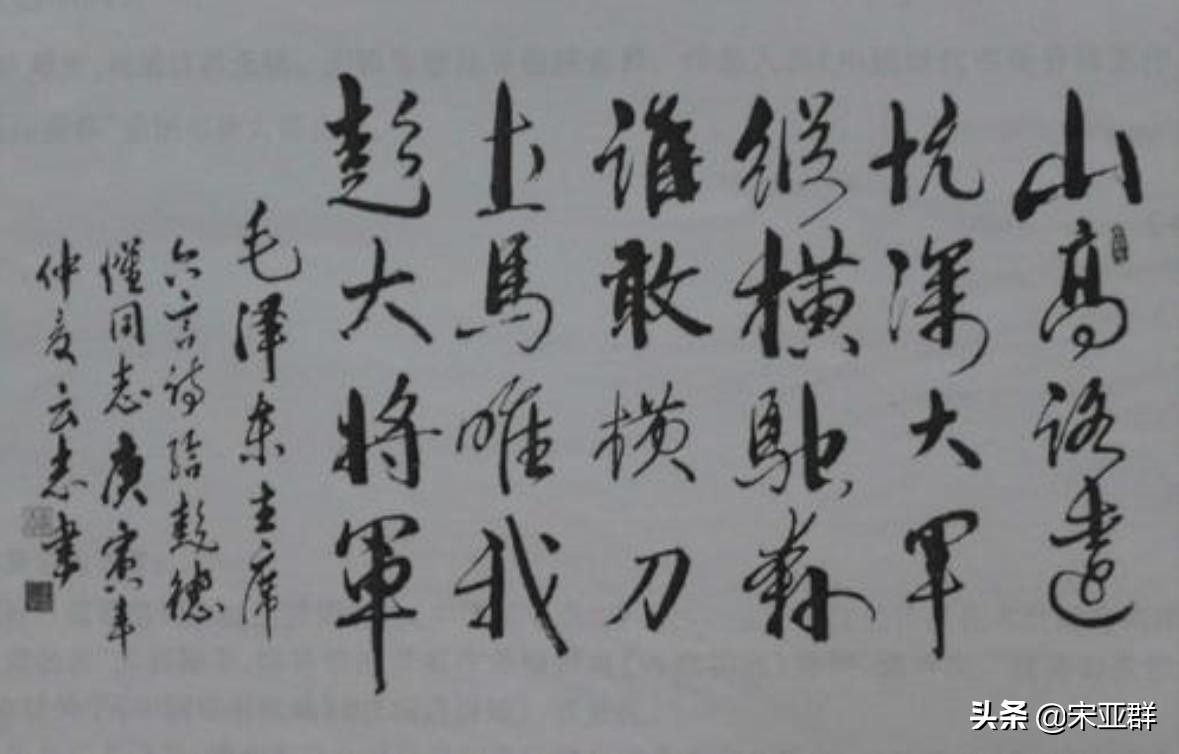 山高路遠
坑深大軍
縱橫馳奔
誰敢橫刀
上馬唯我
彭大將軍
毛泽東主席
六言诗给彭德
懷同志庚寅年
仲夏云志書
头条 @宋亚群